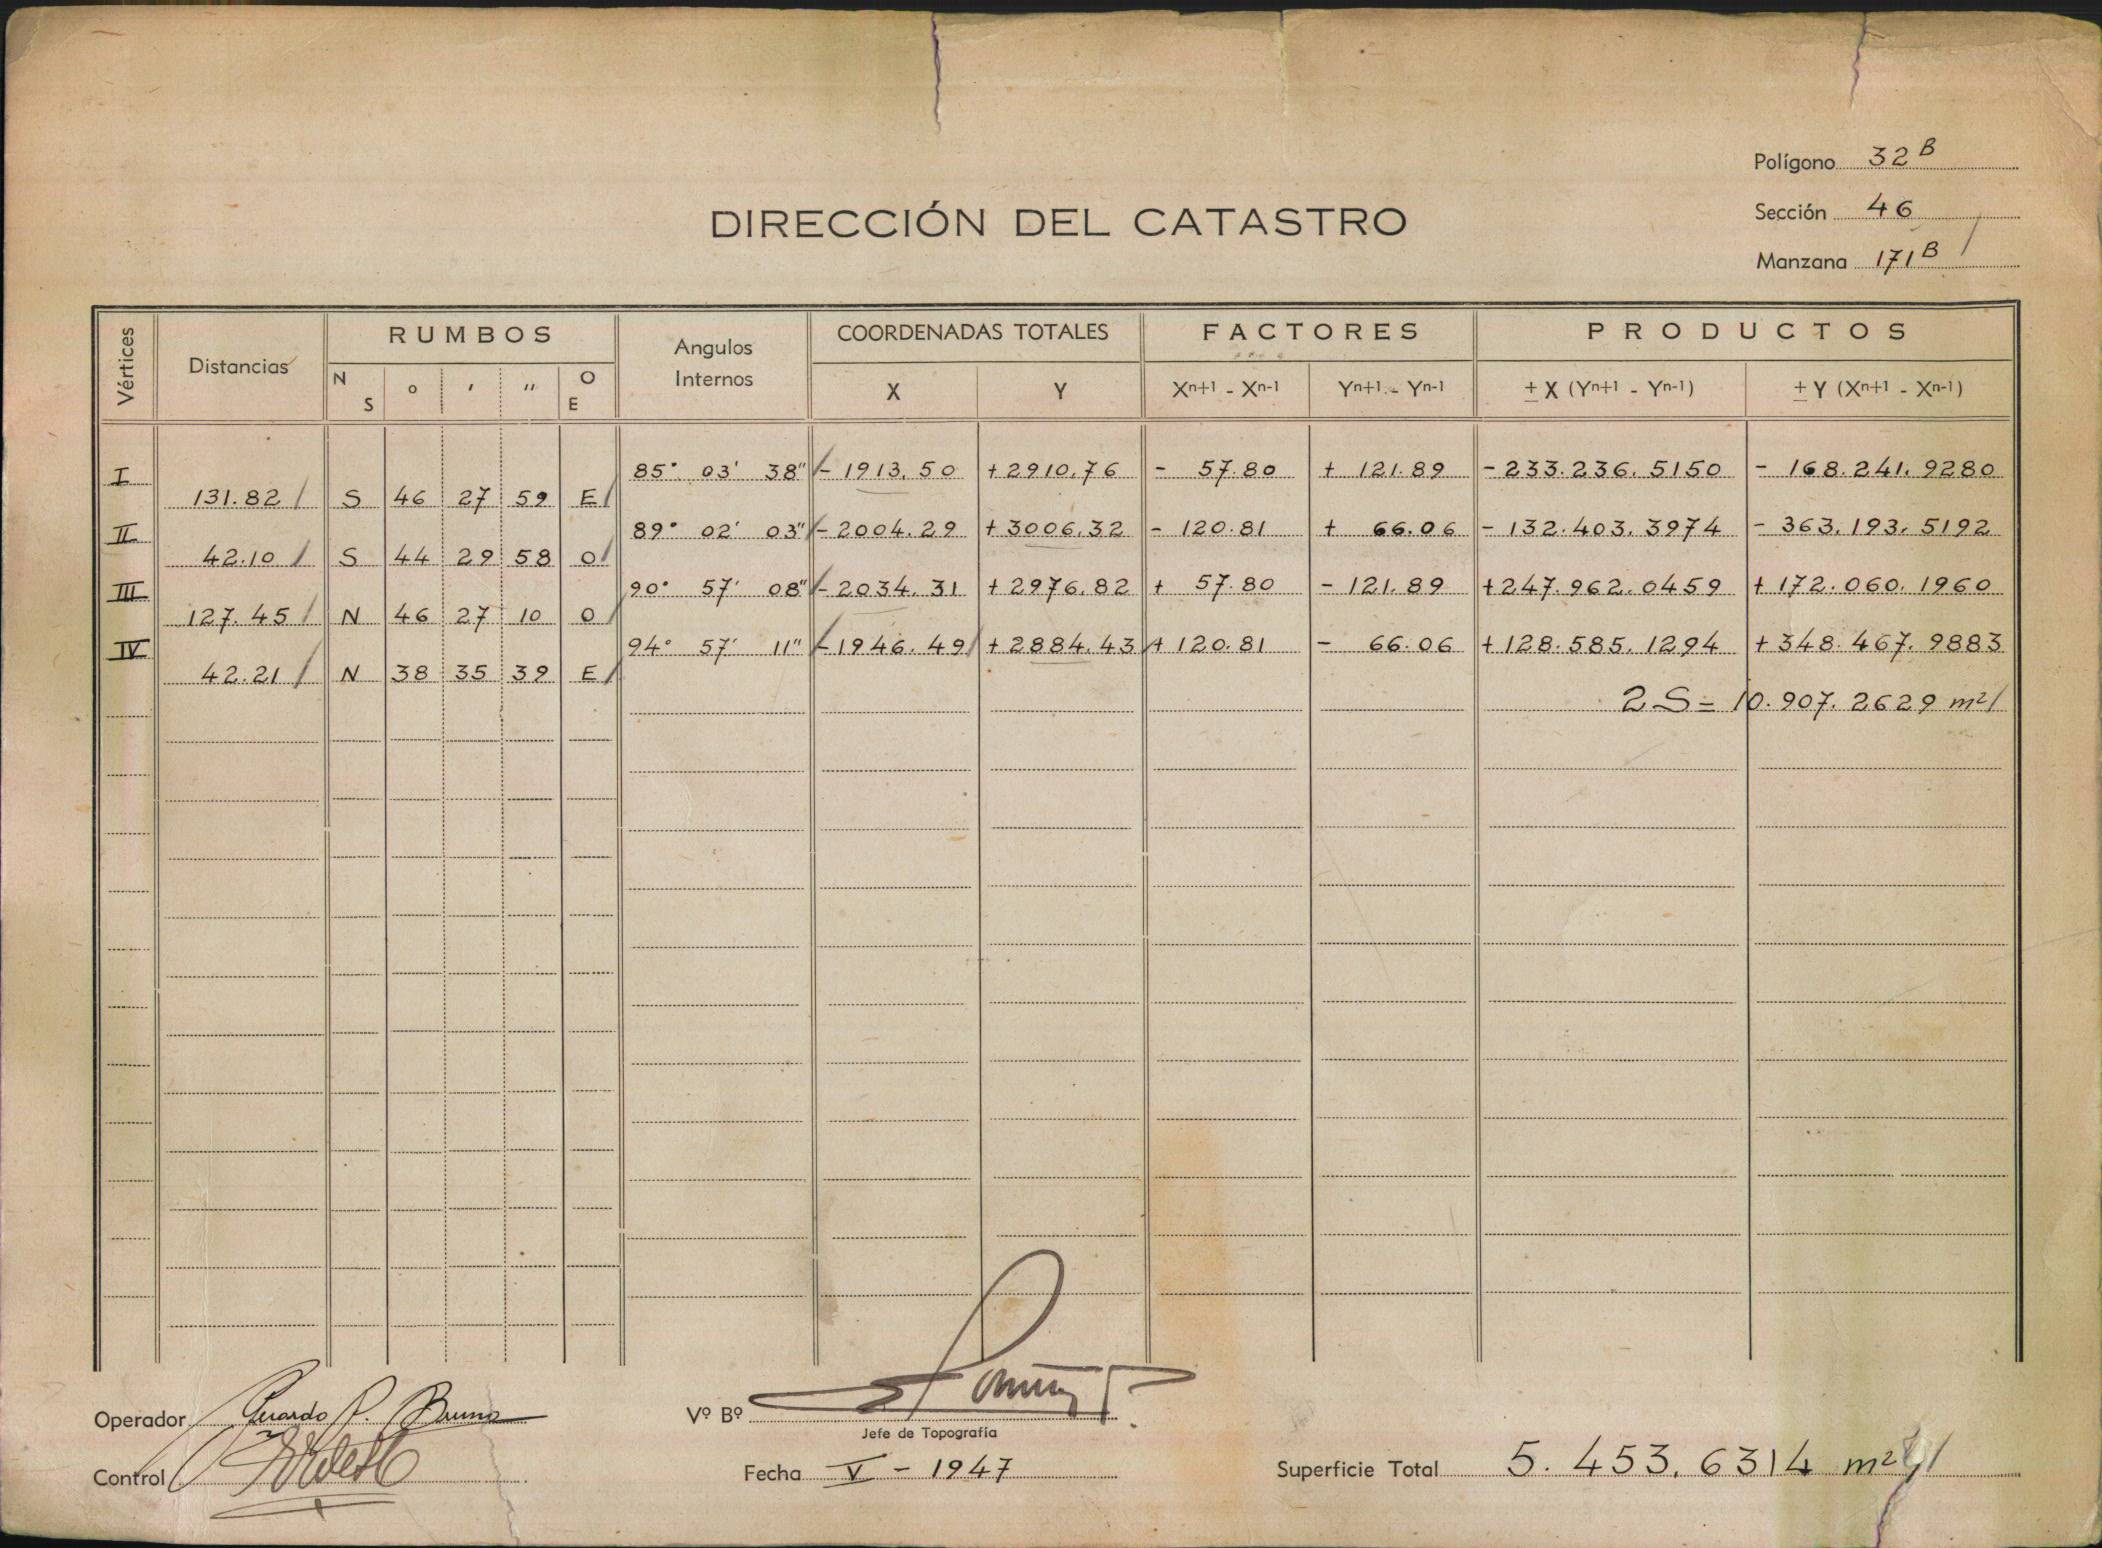 Polígono 32 B
Sección 46
Manzana 171 B
DIRECCIÓN DEL CATASTRO
Vértices Distancias RUMBOS Angulos Internos COORDENADAS TOTALES FACTORES PRODUCTOS
N S ° ' " O E X Y Xn+1 - Xn-1 Yn+1 - Yn-1 ± X (Yn+1 - Yn-1) ± Y (Xn+1 - Xn-1)
I 85° 03' 38" - 1913.50 + 2910.76 - 57.80 + 121.89 - 233.236.5150 - 168.241.9280
131.82 S 46 27 59 E
II 89° 02' 03" - 2004.29 + 3006.32 - 120.81 + 66.06 - 132.403.3974 - 363.193.5192
42.10 S 44 29 58 O
III 90° 57' 08" - 2034.31 + 2976.82 + 57.80 - 121.89 + 247.962.0459 + 172.060.1960
127.45 N 46 27 10 O
IV 94° 57' 11" - 1946.49 + 2884.43 + 120.81 - 66.06 + 128.585.1294 + 348.467.9883
42.21 N 38 35 39 E
2S = 10.907.2629 m2
Operador Gerardo P. Bruno
Vº Bº
Jefe de Topografía
Control
Fecha V - 1947
Superficie Total 5.453.6314 m2